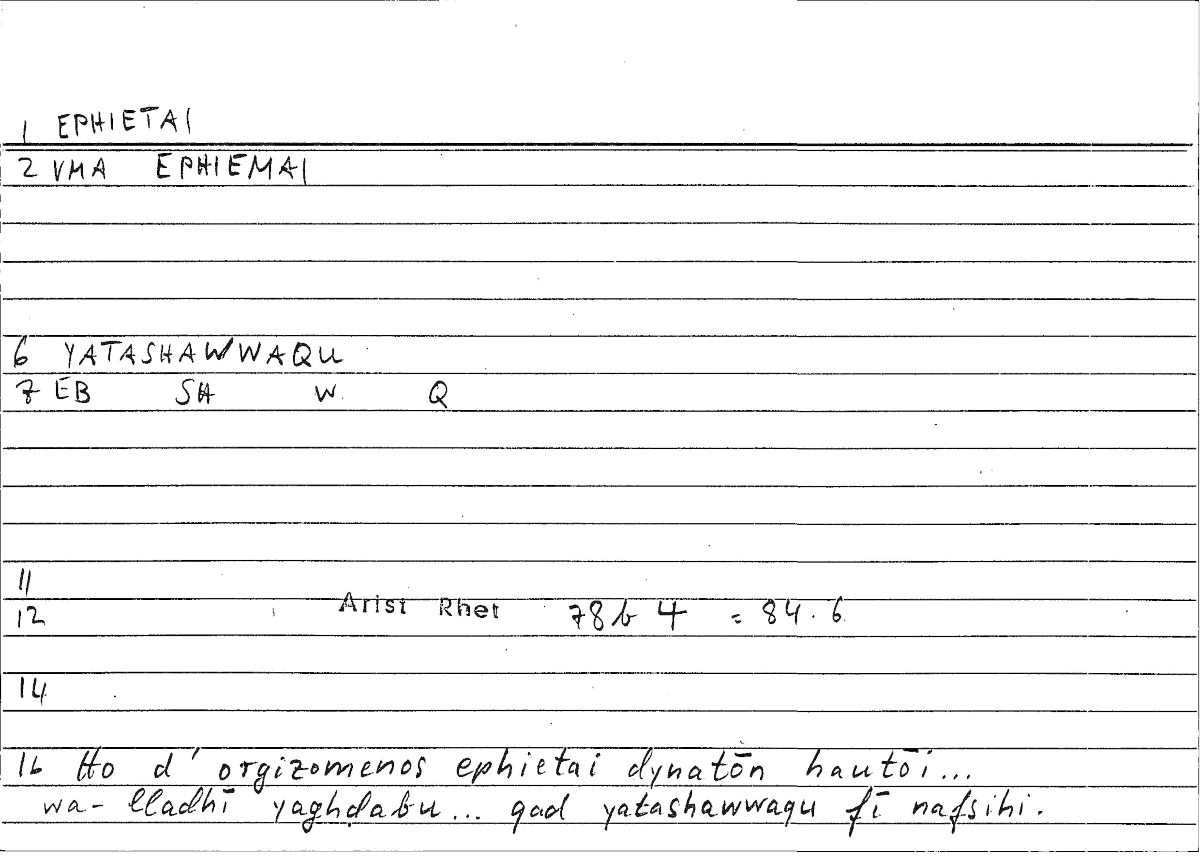 1 EPHIETAI
2 VMA EPHIEMAI
6 YATASHAWWAQU
7 EB SH W Q
11
12 Arist Rhet 78b 4 = 84.6
14
16 Ho d' orgizomenos ephietai dynatōn hautōi...
wa-lladhī yaghḍabu... qad yatashawwaqu fī nafsihi.